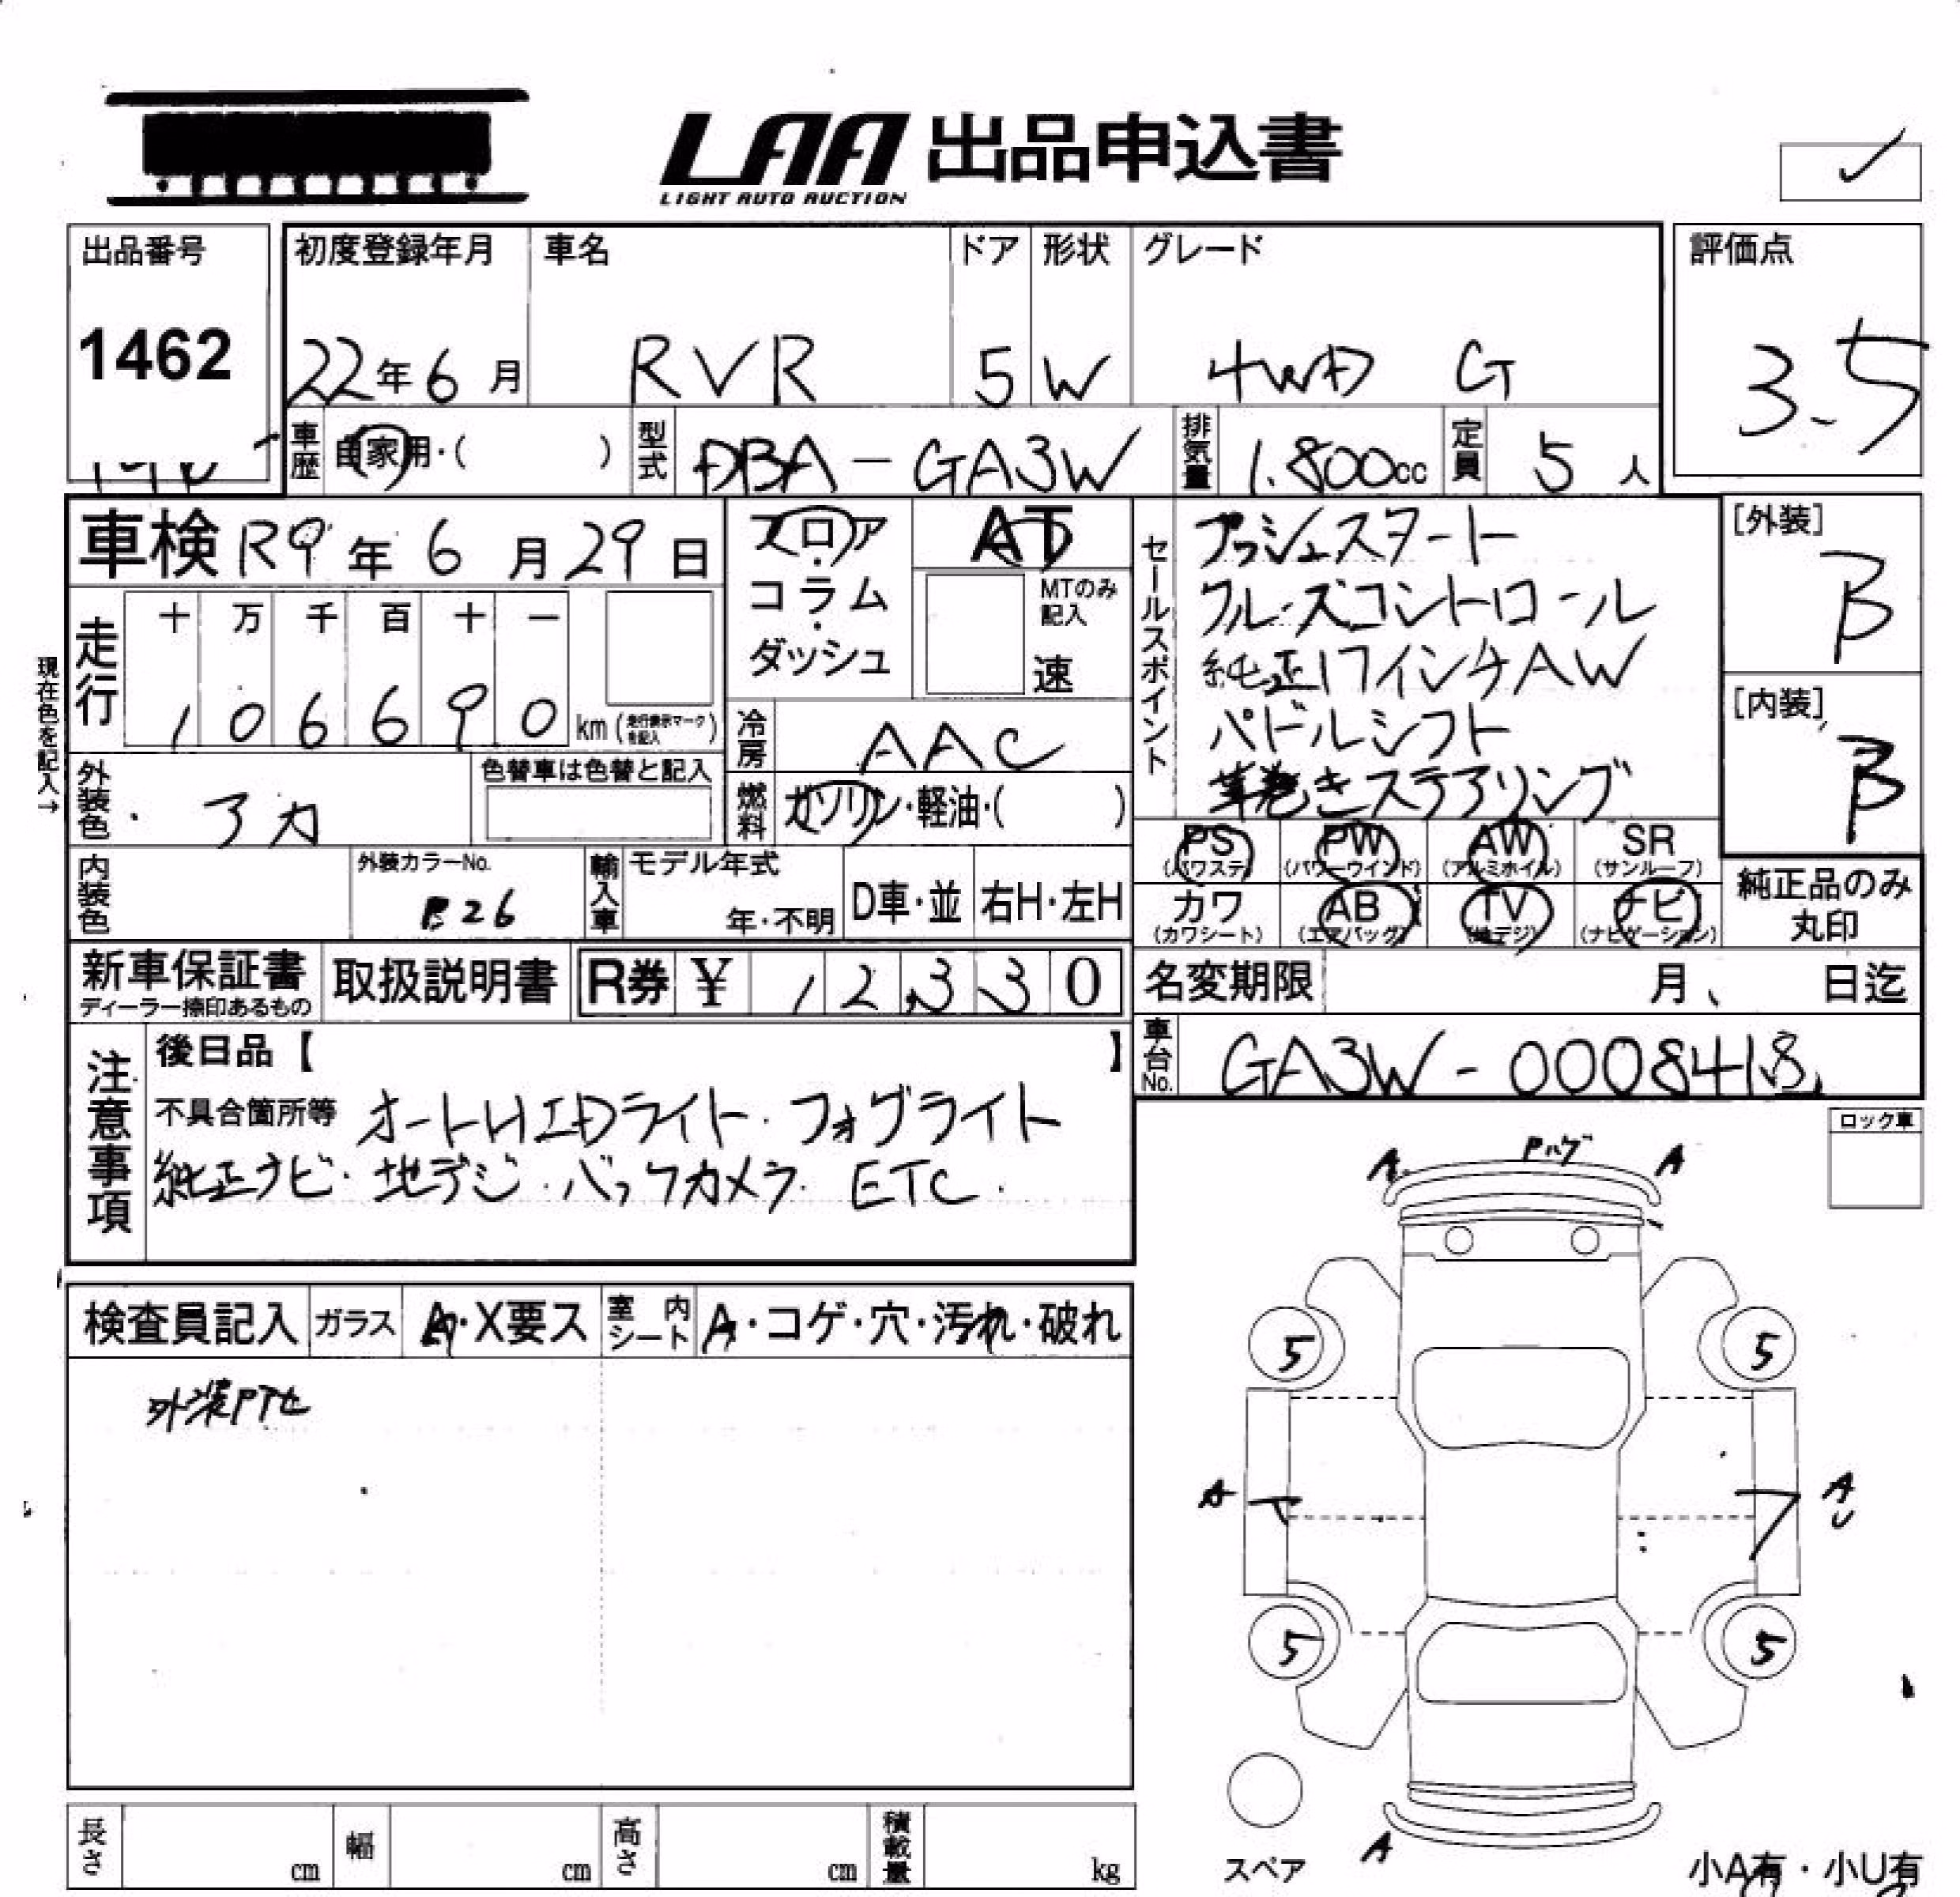 LAA 出品申込書
LIGHT AUTO AUCTION
出品番号 初度登録年月 車名 ドア 形状 グレード 評価点
1462 22年6月 RVR 5 W 4WD G 3.5
車歴 自家用・( ) 型式 DBA-GA3W 排気量 1.800cc 定員 5人
車検 R9年6月29日 フロア・コラム・ダッシュ AT
MTのみ記入 速
セールスポイント プッシュスタート
クルーズコントロール
純正17インチAW
パドルシフト
革巻きステアリング
[外装] B
[内装] B
現在色を記入→
走行 十 万 千 百 十 一
1 0 6 6 9 0 km (走行表示マークを記入)
冷房 AAC
外装色 アカ 色替車は色替と記入
燃料 ガソリン・軽油・( )
PS (パワステ) PW (パワーウインド) AW (アルミホイル) SR (サンルーフ)
カワ (カワシート) AB (エアバッグ) TV (地デジ) ナビ (ナビゲーション)
純正品のみ
丸印
内装色 外装カラーNo. P26 輸入車 モデル年式 年・不明 D車・並 右H・左H
新車保証書 ディーラー捺印あるもの 取扱説明書 R券 ¥ 12,330
名変期限 月 日迄
車台No. GA3W-0008418
注意事項 後日品【 】
不具合箇所等 オートHIDライト・フォグライト
純正ナビ・地デジ・バックカメラ・ETC.
ロック車
A Pハゲ A
検査員記入 ガラス A・X要ス 室内シート A・コゲ・穴・汚れ・破れ
外装PTセ
5 5
A A
U
5 5
A
スペア
小A有・小U有
長さ cm 幅 cm 高さ cm 積載量 kg